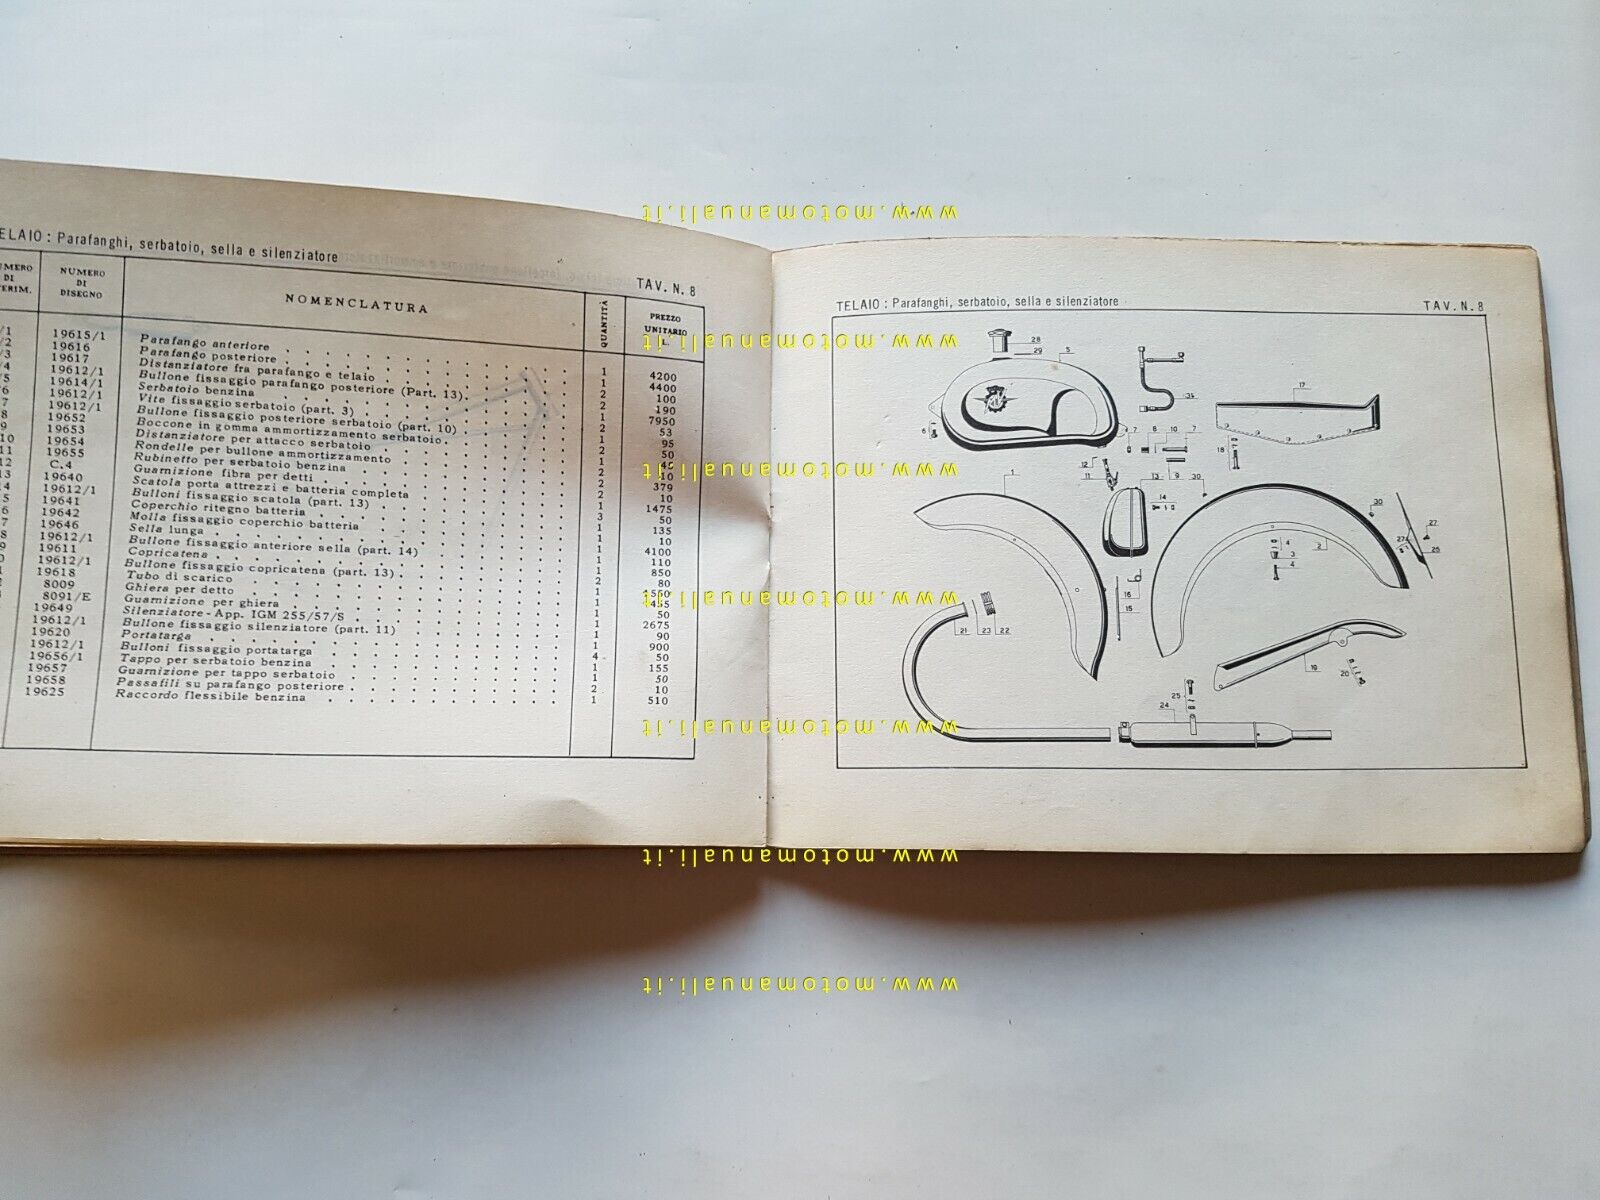 TELAIO : Parafanghi, serbatoio, sella e silenziatore
TAV. N. 8
NUMERO DI DISEGNO
NOMENCLATURA
QUANTITÀ
PREZZO UNITARIO L.
19615/1 Parafango anteriore 1 4200
19616 Parafango posteriore 1 4400
19617 Distanziatore fra parafango e telaio 2 100
19612/1 Bullone fissaggio parafango posteriore (Part. 13) 2 190
19614/1 Serbatoio benzina 1 7950
19612/1 Vite fissaggio serbatoio (part. 3) 2 53
19612/1 Bullone fissaggio posteriore serbatoio (part. 10) 1 95
19652 Boccone in gomma ammortizzamento serbatoio 2 50
19653 Distanziatore per attacco serbatoio 1
19654 Rondelle per bullone ammortizzamento 2 10
19655 Rubinetto per serbatoio benzina 2 379
C.4 Guarnizione fibra per detti 2 10
19640 Scatola porta attrezzi e batteria completa 1 1475
19612/1 Bulloni fissaggio scatola (part. 13) 3 50
19641 Coperchio ritegno batteria 1 135
19642 Molla fissaggio coperchio batteria 1 10
19646 Sella lunga 1 4100
19612/1 Bullone fissaggio anteriore sella (part. 14) 1 110
19611 Copricatena 1 850
19612/1 Bullone fissaggio copricatena (part. 13) 2 80
19618 Tubo di scarico 1 1550
8009 Ghiera per detto 1 455
8091/E Guarnizione per ghiera 1 50
19649 Silenziatore - App. IGM 255/57/S 1 2675
19612/1 Bullone fissaggio silenziatore (part. 11) 1 90
19620 Portatarga 1 900
19612/1 Bulloni fissaggio portatarga 4 50
19656/1 Tappo per serbatoio benzina 1 155
19657 Guarnizione per tappo serbatoio 1 50
19658 Passafili su parafango posteriore 2 10
19625 Raccordo flessibile benzina 1 510
TELAIO : Parafanghi, serbatoio, sella e silenziatore
TAV. N. 8
28
29
5
17
6
7 8 10 7
9
18
12
11
13
30
14
1
30
27
4
2
3
4
26
16
15
21 23 22
19
20
25
24
www.motomanuali.it
www.motomanuali.it
www.motomanuali.it
www.motomanuali.it
www.motomanuali.it
www.motomanuali.it
www.motomanuali.it